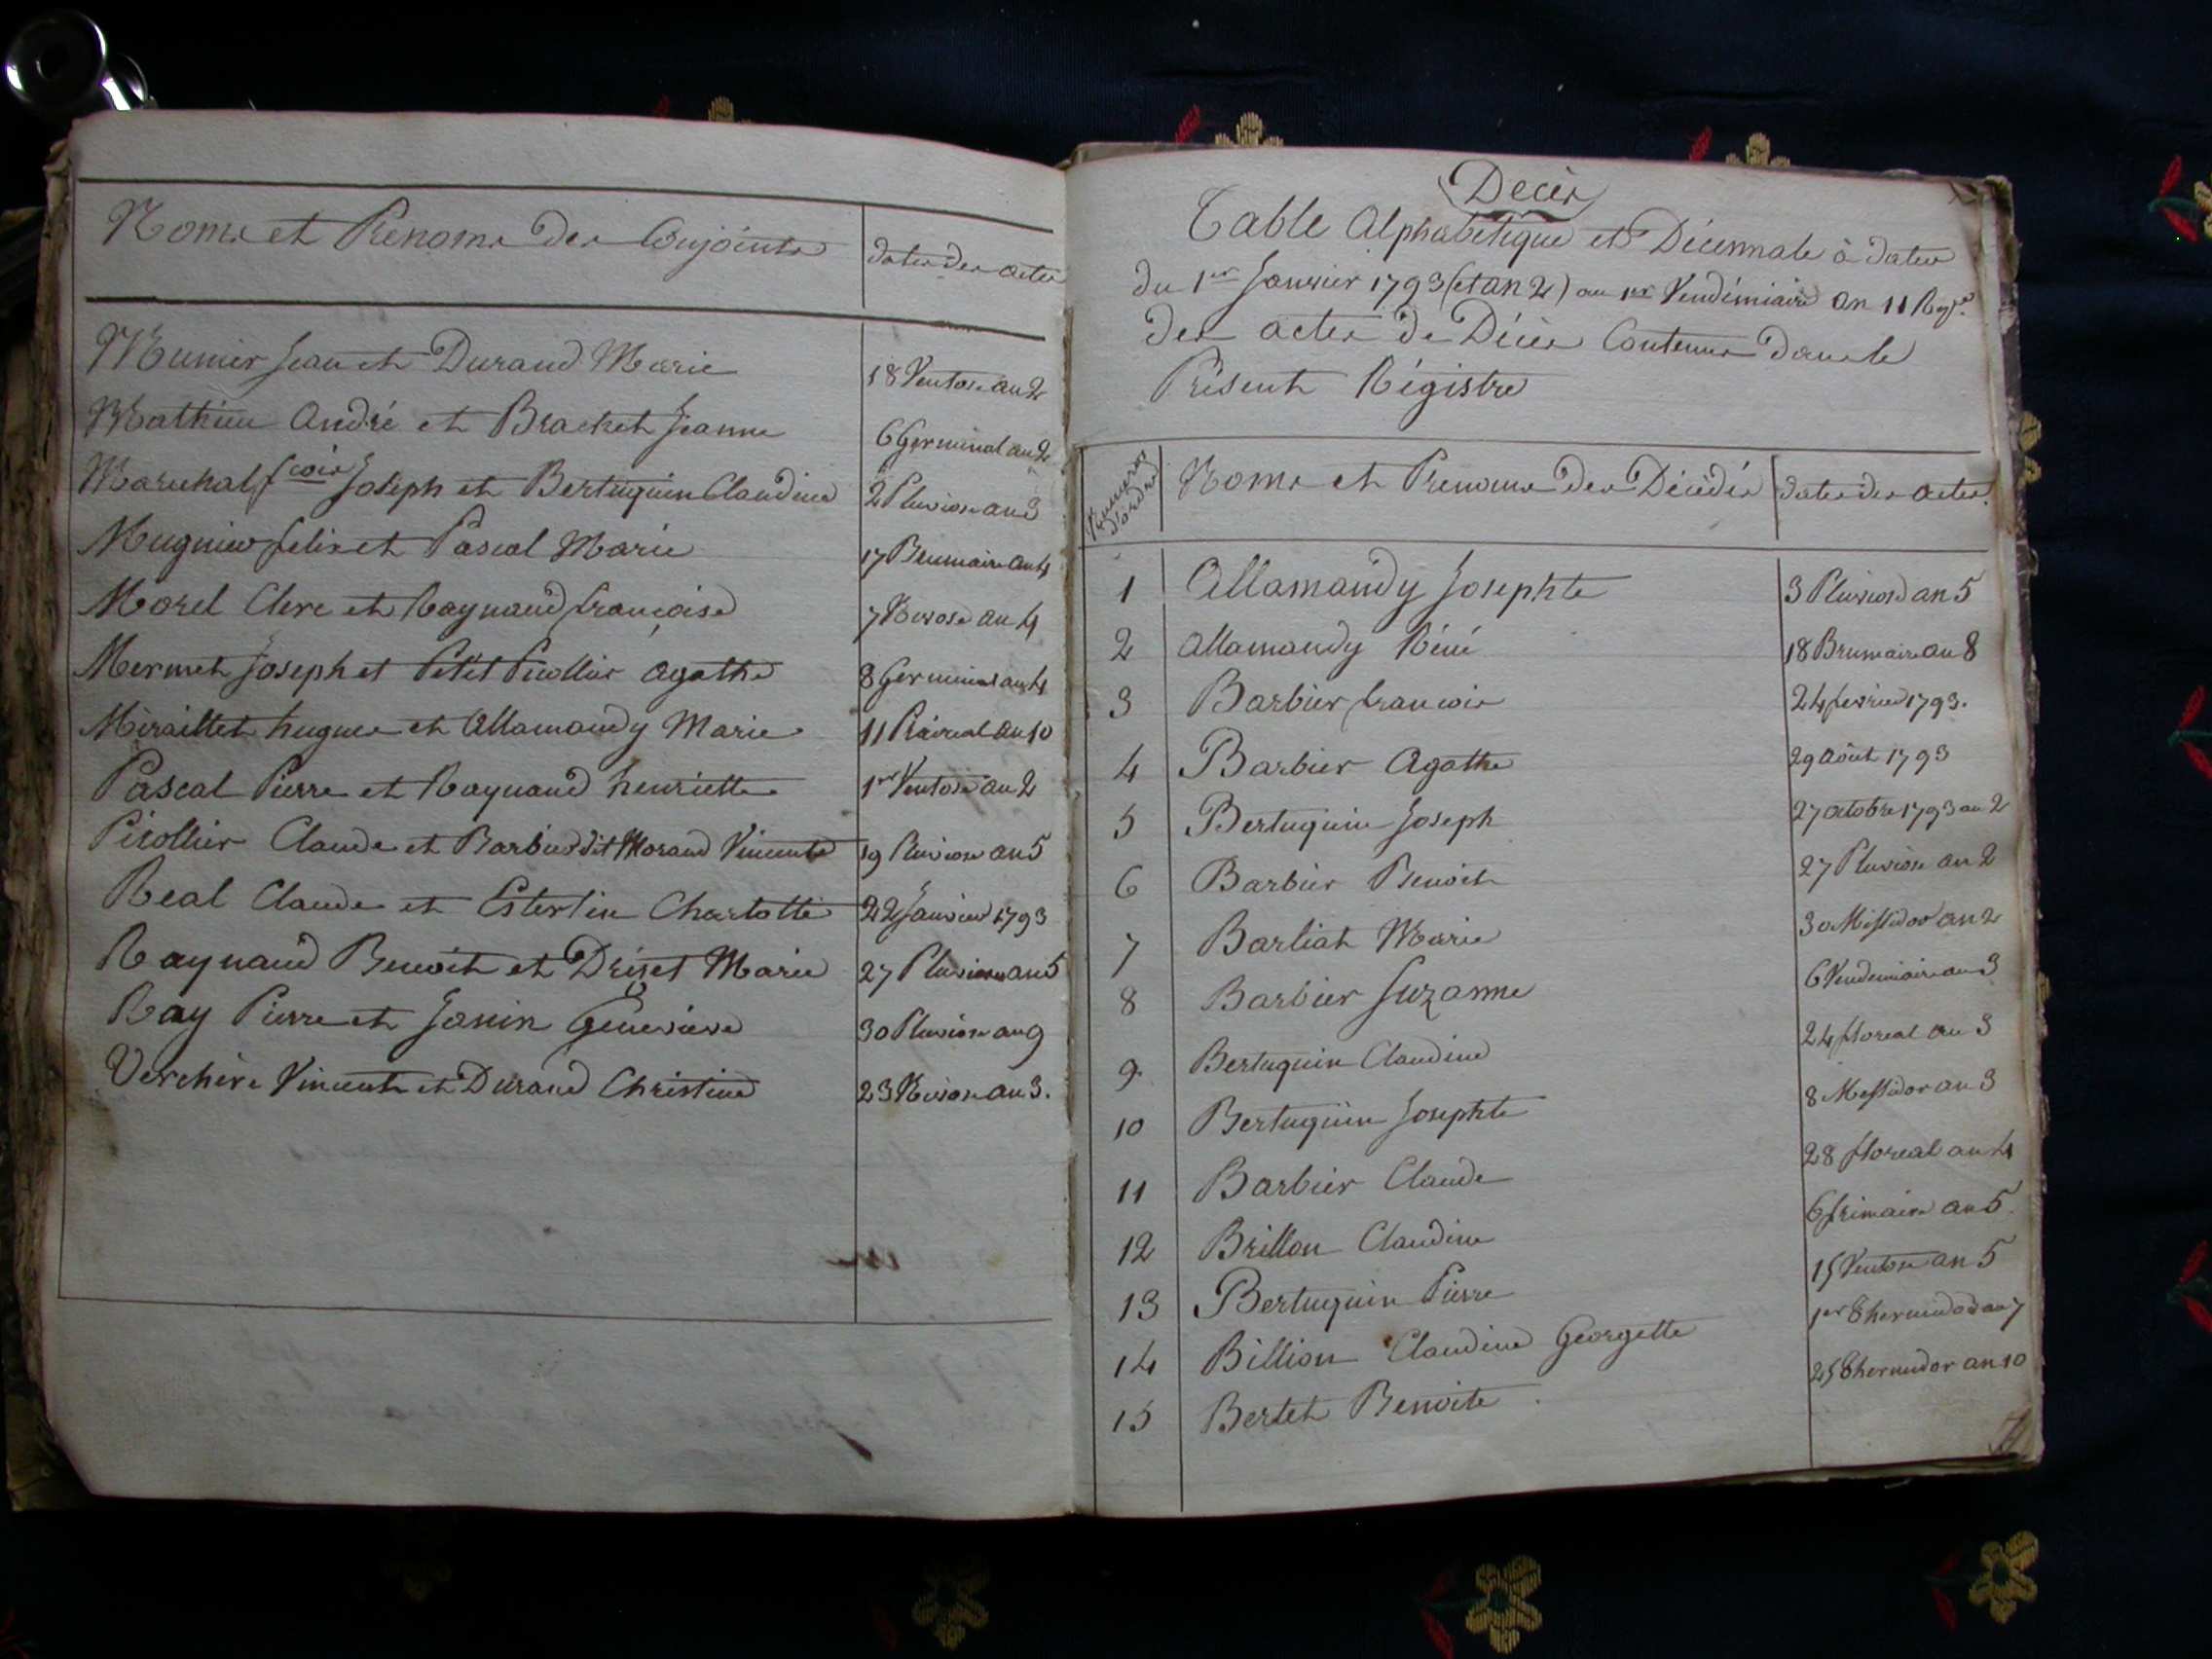 Noms et Prénoms des Conjoints
dates des actes
Munier Jean et Durand Marie 18 Ventose an 2
Mathieu André et Brachet Jeanne 6 Germinal an 2
Marechal fcois Joseph et Bertuquin Claudine 2 Pluviose an 3
Mugnier felix et Pascal Marie 17 Brumaire an 4
Morel Clerc et Raynaud françoise 7 Nivose an 4
Mermet Joseph et Petit Picollier agathe 8 Germinal an 4
Miraillet hugues et Allamandy Marie 11 Prairéal an 10
Pascal Pierre et Raynaud henriette 1er Ventose an 2
Picollier Claude et Barbier dit Morand Vincente 19 Pluviose an 5
Real Claude et Esterlin Charlotte 22 Janvier 1793
Raynaud Benoit et Driset Marie 27 Pluviose an 5
Ray Pierre et Janin Genevieve 30 Pluviose an 9
Verchère Vincent et Durand Christine 23 Nivose an 3.
Décès
Table Alphabétique et Décennale à dater
du 1er Janvier 1793 (et an 2) au 1er Vendémiaire an 11
des actes de Décès Contenus dans le
Présent Régistre
Numéros d'ordre
Noms et Prenoms des Décédés
dates des actes.
1 Allamandy Josephte 3 Pluviose an 5
2 Allamandy Réné 18 Brumaire an 8
3 Barbier francois 24 fevrier 1793.
4 Barbier Agathe 29 Août 1793
5 Bertuquin Joseph 27 octobre 1793 an 2
6 Barbier Benoit 27 Pluviose an 2
7 Barliat Marie 30 Messidor an 2
8 Barbier Suzanne 6 Vendemiaire an 3
9 Bertuquin Claudine 24 floreal an 3
10 Bertuquin Josephte 8 Messidor an 3
11 Barbier Claude 28 floreal an 4
12 Brillon Claudine 6 frimaire an 5
13 Bertuquin Pierre 15 Ventose an 5
14 Billion Claudine Georgette 1er Thermidor an 7
15 Bertet Benoite 25 Thermidor an 10